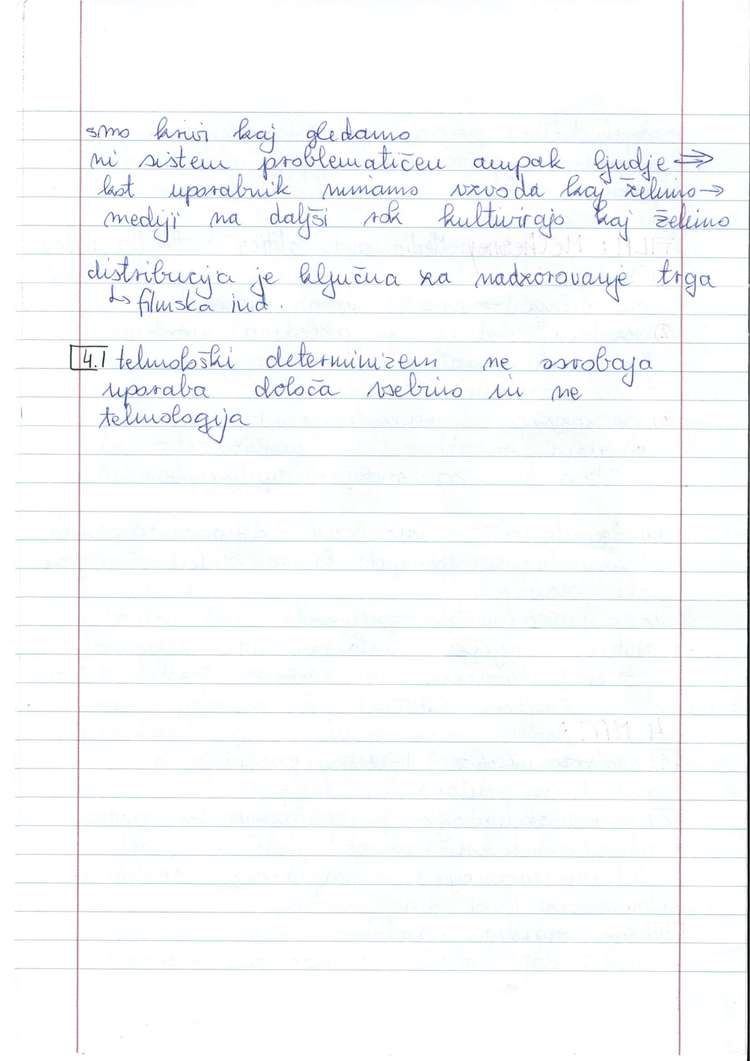 smo krivi kaj gledamo
ni sistem problematičen ampak ljudje ⇒
kot uporabnik nimamo vzvoda kaj želimo →
mediji na daljši rok kultivirajo kaj želimo
distribucija je ključna za nadzorovanje trga
↳ filmska ind.
4.) tehnološki determinizem ne osvobaja
uporaba določa vsebino in ne
tehnologija